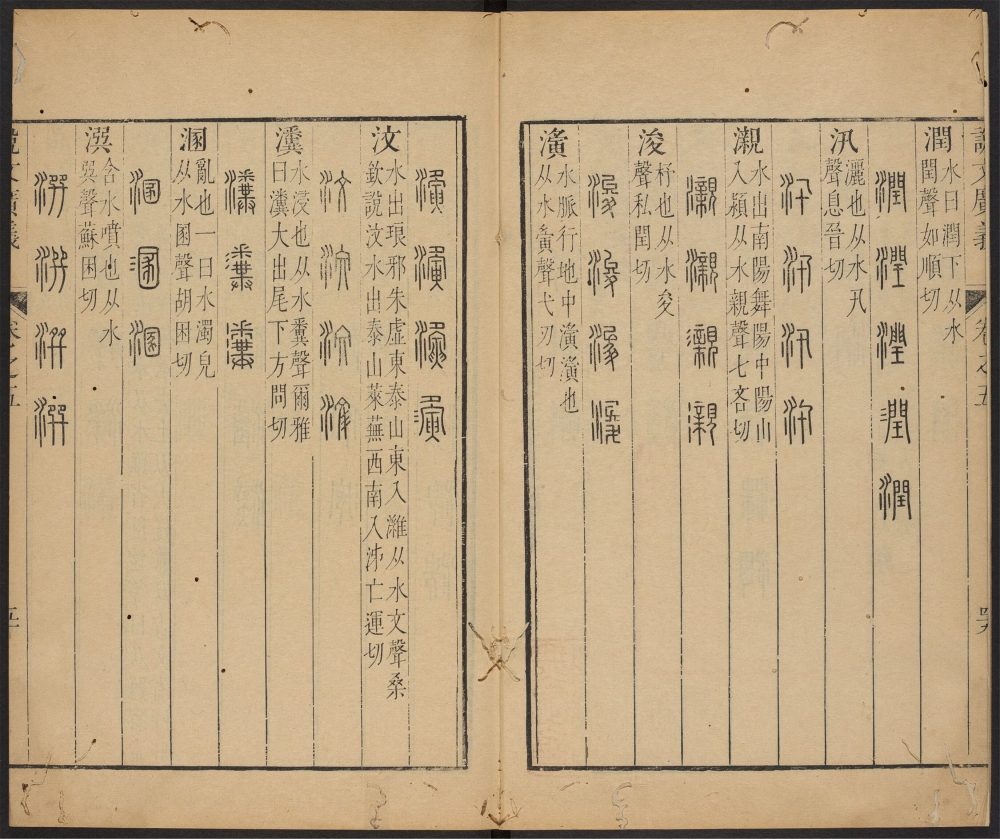 說文廣義 卷之五 四六
潤 水曰潤下从水
閏聲如順切
潤 潤 潤 潤 潤
汛 灑也从水卂
聲息晉切
汛 汛 汛 汛
瀙 水出南陽舞陽中陽山
入潁从水親聲七吝切
瀙 瀙 瀙
浚 杼也从水夋
聲私閏切
浚 浚 浚 浚
濥 水脈行地中濥濥也
从水夤聲弋刃切
濥 濥 濥 濥
汶 水出琅邪朱虛東泰山東入濰从水文聲桑
欽說汶水出泰山萊蕪西南入泲亡運切
汶 汶 汶 汶
瀵 水浸也从水糞聲爾雅
曰瀵大出尾下方問切
瀵 瀵 瀵
溷 亂也一曰水濁皃
从水圂聲胡困切
溷 溷 溷
潠 含水噴也从水
巺聲蘇困切
潠 潠 潠 潠
說文廣義 卷之五